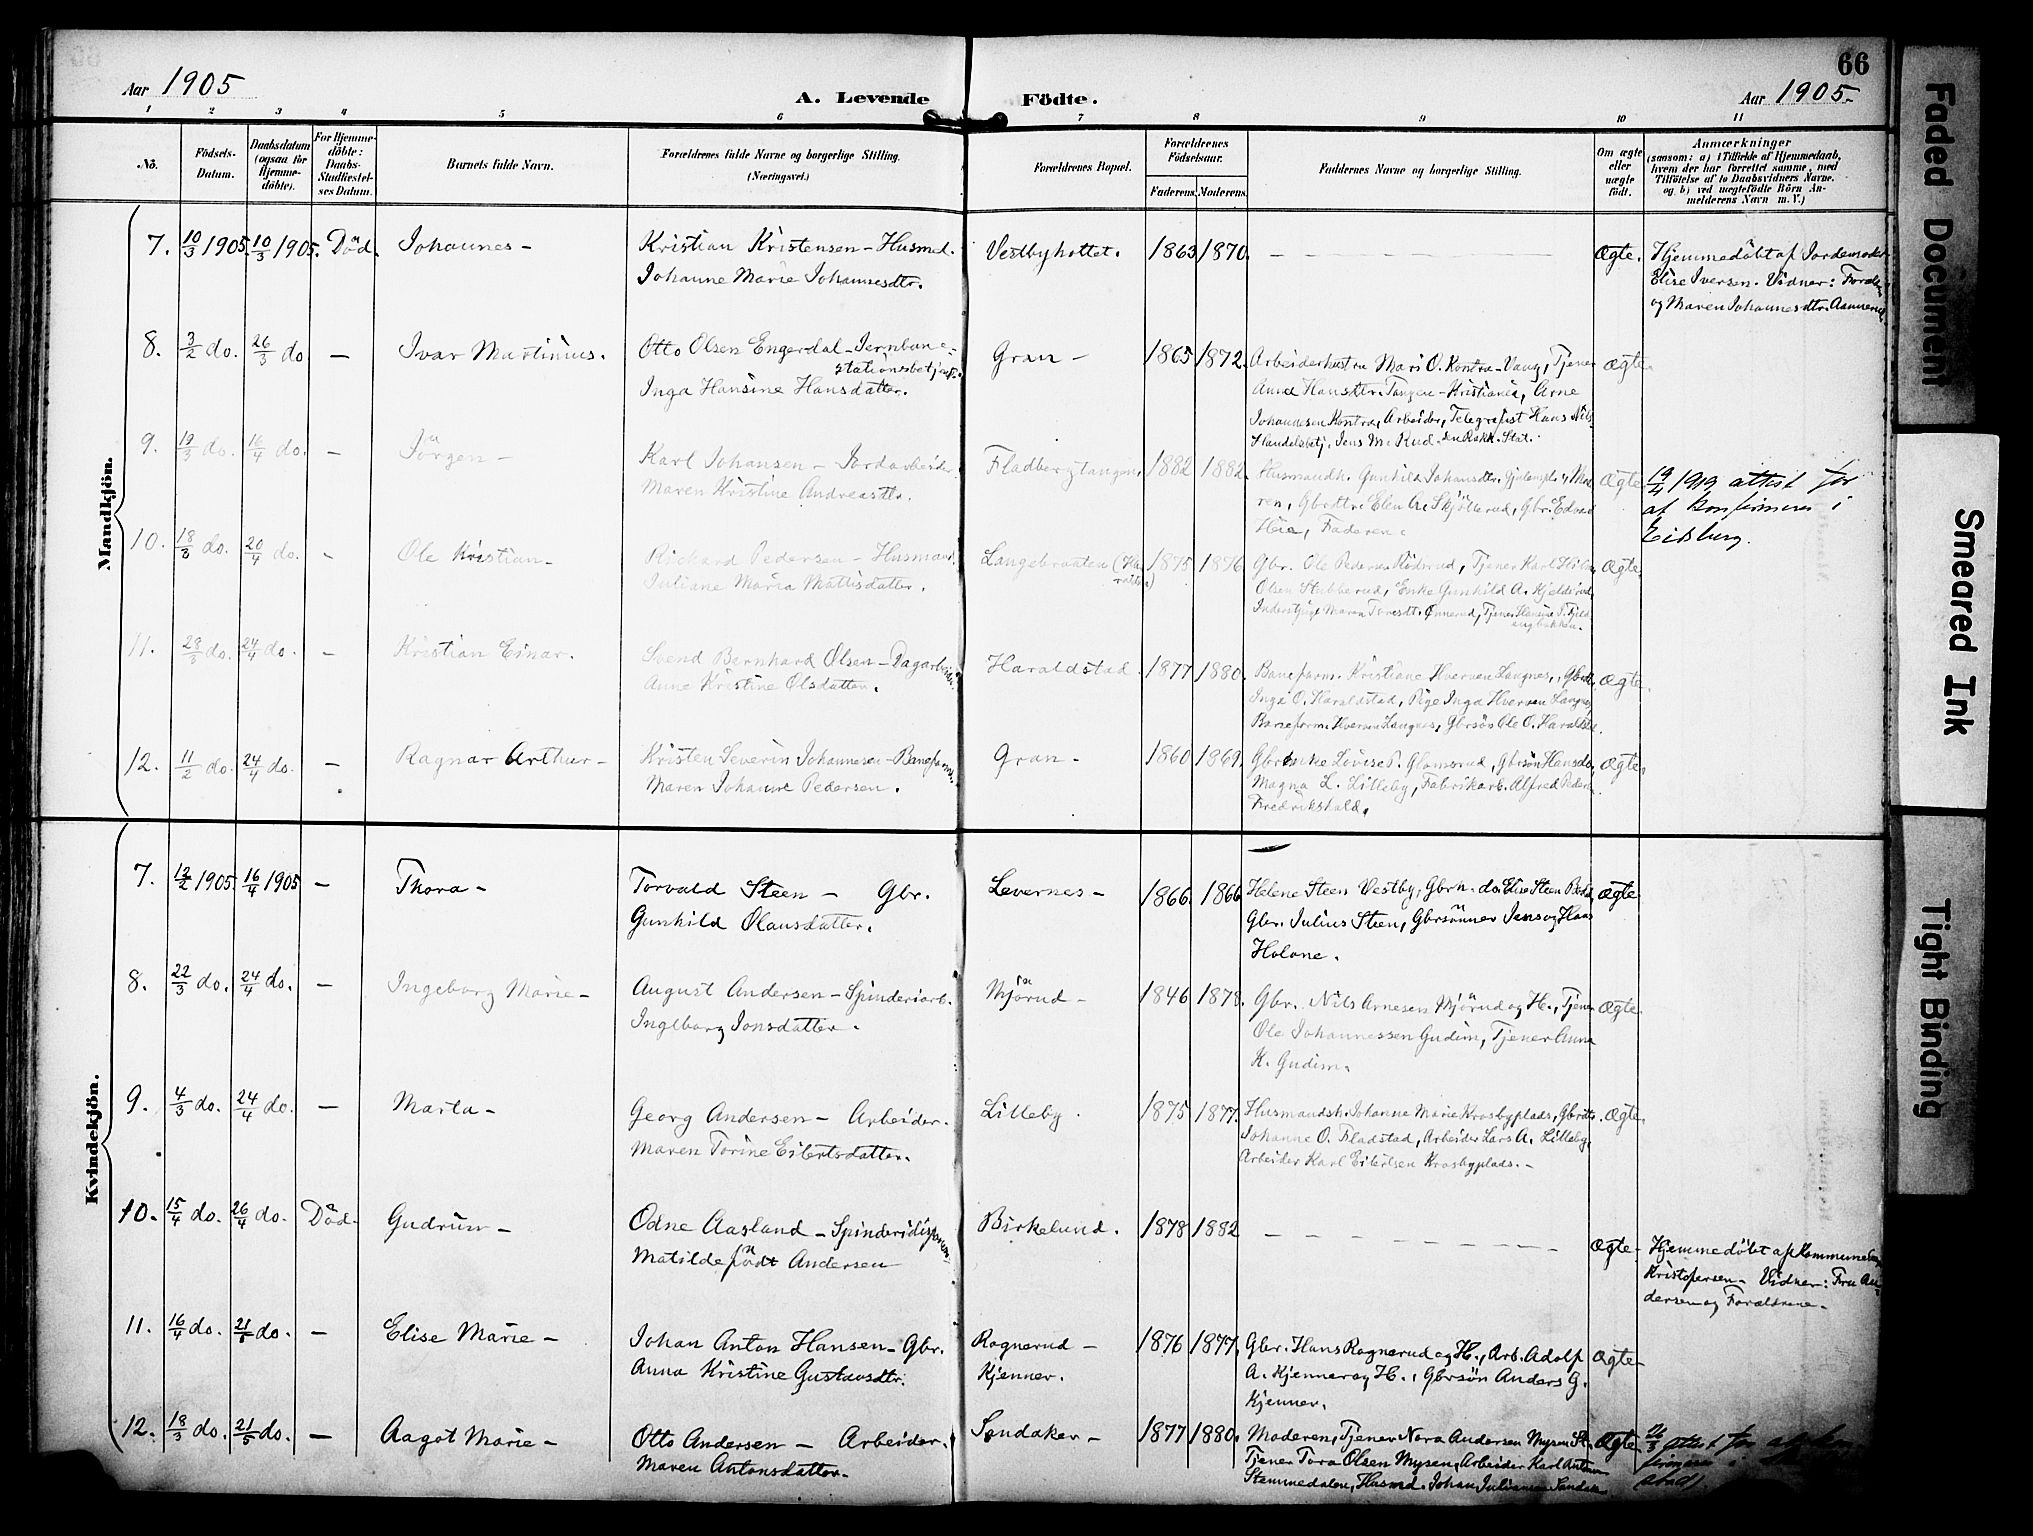 Aar 1905
A. Levende Födte.
66
Aar 1905.
1 2 3 4 5 6 7 8 9 10 11
No.
Födsels-
Datum.
Daabsdatum
(ogsaa for
Hjemme-
döbte).
For Hjemme-
döbte:
Daabs-
Stadfæstel-
ses Datum.
Barnets fulde Navn.
Forældrenes fulde Navne og borgerlige Stilling.
(Næringsvei.)
Forældrenes Bopæl.
Forældrenes
Födselsaar.
Faderens. Moderens.
Faddernes Navne og borgerlige Stilling.
Om ægte
eller
uægte
födt.
Anmærkninger
(saasom: a) i Tilfælde af Hjemmedaab,
hvem der har forrettet samme, med
Tilföielse af to Daabsvidners Navne,
og b) ved uægtefödte Börn An-
melderens Navn m. V.)
Mandkjön.
7. 10/3 1905. 10/3 1905. Död. Johannes - Kristian Kristensen - Husmd. Vestbykottet. 1863 1870. Ægte. Hjemmedöbt af Jordemoder
Johanne Marie Johannesdtr. Elise Iversen. Vidner:
og Maren Johannesdtr.
8. 3/2 do. 26/3 do - Ivar Martinius. Otto Olsen Engerdal - Jernbane- Gran - 1865 1872. Arbeiderhustru Mari O. Kontra-Vang, Tjener Ægte.
stationsbetjent.
Inga Hansine Hansdatter. Anna Hansdtr. Tangen - Kristiania, Arne
Johannesen Kontra, Arbeider, Telegrafist Hans
Handelsbetj. Jens M. Rud.
9. 19/3 do. 16/4 do. - Jörgen - Karl Johansen - Jordarbeider. Fladbergtangen. 1882 1882. Husmandk. Gunhild Johansdtr. Ægte 19/4 1919 attest for
Maren Kristine Andreasdtr. ren, Gbrdtr. Elen A. Skjöllerud, Gbr. Edvard at konfirmeres i
Heie, Faderen. Eidsberg.
10. 18/3 do. 20/4 do. - Ole Kristian - Rickard Pedersen - Husmand. Langebraaten 1875 1876 Gbr. Ole Pedersen Röderud, Tjener Karl Ægte.
Juliane Maria Mattisdatter. Olsen Stubberud, Enke Gunhild A.
Inderstpige Maren Önnerud, Tjener Hansine
11. 28/3 do. 24/4 do. - Kristian Einar. Svend Bernhard Olsen - Dagarbeider. Haraldstad. 1877 1880. Baneform. Kristiane Hverven Langnes, Ægte.
Anne Kristine Olsdatter. Inga O. Haraldstad, Pige Inga Hverven Langnes,
Baneform. Hverven Langnes, Gbrsön Ole O. Haraldstad.
12. 11/2 do. 24/4 do. - Ragnar Arthur - Kristen Severin Johannesen - Baneform. Gran - 1860 1869. Gbrenke Lovise P. Glomsrud, Gbrsön Hans do, Ægte.
Maren Johanne Pedersen. Magna L. Lilleby, Fabrikarb. Alfred Peders.
Fredrikshald.
Kvindekjön.
7. 12/2 1905 16/4 1905 - Thora - Torvald Steen - Gbr. Levernes - 1866. 1866 Helene Steen Vestby, Gbrk. do. Elise Steen Ægte
Gunhild Olausdatter. Gbr. Julius Steen, Gbrsönner Jens og Hans
Holone.
8. 22/3 do. 24/4 do. - Ingeborg Marie - August Andersen - Spinderiarb. Mjörud - 1846 1878. Gbr. Nils Arnesen Mjörud og H., Tjener Ægte.
Ingeborg Jonsdatter. Ole Johannessen Gudim, Tjener Anna
K. Gudim.
9. 4/3 do. 24/4 do. - Marta - Georg Andersen - Arbeider. Lilleby. 1875 1877. Husmandsk. Johanne Marie Krosbyplads, Gbrdtr. Ægte.
Maren Torine Eilertsdatter. Johanne O. Fladstad, Arbeider Lars A. Lilleby,
Arbeider Karl Eilertsen Krosbyplads. -
10. 15/4 do. 26/4 do. Död. Gudrun - Odne Aasland - Birkelund. 1878 1882 Ægte - Hjemmedöbt af
Matilde födt Andersen Kristofersen - Vidner: Fru An-
dersen og Forældrene.
11. 16/4 do. 21/5 do. - Elise Marie - Johan Anton Hansen - Gbr. Rognerud - 1876 1877. Gbr. Hans Rognerud og H., Arb. Adolf Ægte -
Anna Kristine Gustavsdtr. Kjenner. A. Kjenner og H., Gbrsön Anders G.
Kjenner.
12. 18/3 do. 21/5 do. - Aagot Marie - Otto Andersen - Arbeider. Sandaker - 1877 1880. Moderen, Tjener Nora Andersen Mysen St. Ægte attest for
Maren Antonsdatter. Tjener Tora Olsen Mysen, Arbeider Karl
Stemmedalen, Husmd. Johan
Faded Document
Smeared Ink
Tight Binding